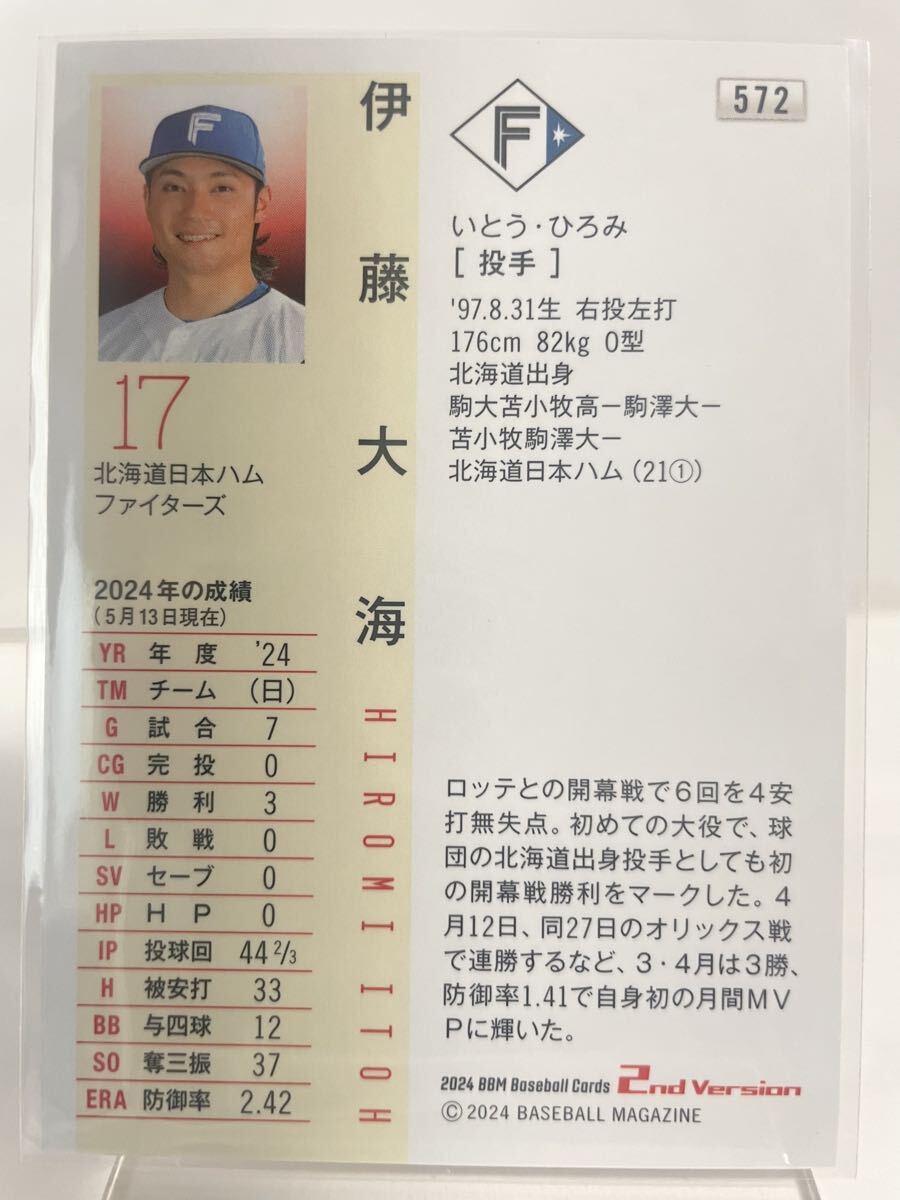 572
F
F
伊藤大海
HIROMI ITOH
17
北海道日本ハム
ファイターズ
いとう・ひろみ
[ 投手 ]
'97.8.31生 右投左打
176cm 82kg O型
北海道出身
駒大苫小牧高ー駒澤大ー
苫小牧駒澤大ー
北海道日本ハム（21①）
2024年の成績
（5月13日現在）
YR 年度 '24
TM チーム （日）
G 試合 7
CG 完投 0
W 勝利 3
L 敗戦 0
SV セーブ 0
HP HP 0
IP 投球回 44 2/3
H 被安打 33
BB 与四球 12
SO 奪三振 37
ERA 防御率 2.42
ロッテとの開幕戦で6回を4安
打無失点。初めての大役で、球
団の北海道出身投手としても初
の開幕戦勝利をマークした。4
月12日、同27日のオリックス戦
で連勝するなど、3・4月は3勝、
防御率1.41で自身初の月間MV
Pに輝いた。
2024 BBM Baseball Cards 2nd Version
©2024 BASEBALL MAGAZINE